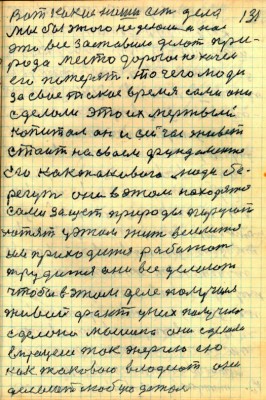 Вот какие наши ест дела 131
мы бы этого не делали нас
это все заставило делат при-
рода место дорогое но нечем
его потерят. Это чего люди
за свое такое время сами они
сделали это их мертвый
капитал он и сичас живет
стоит на своем фундаменте
его как такового люди бе-
регут они в этом находятся
сами за щет природы живут
хотят у этом жит
им приходится работат
трудится они все делают
чтобы в этом деле получился
живый факт у них получилос
сделана машина они сделали
в машине ток энергию ею
как таковою владеют они
делают любую детал